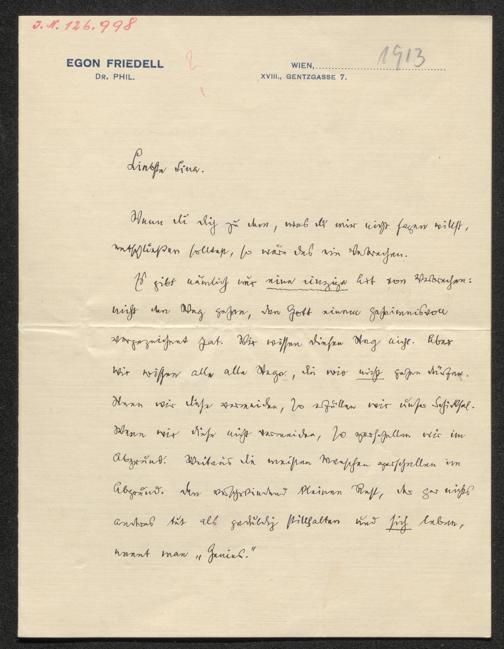 J.N. 126.998
EGON FRIEDELL
DR. PHIL.
WIEN,
1913
XVIII., GENTZGASSE 7.
Liebste Lina.
Wenn du dich zu dem, was du mir nicht sagen willst,
entschließen solltest, so wäre das ein Verbrechen.
Es gibt nämlich nur eine einzige Art von Verbrechen:
nicht den Weg gehen, den Gott einem geheimnisvoll
vorgezeichnet hat. Wir wissen diesen Weg nicht. Aber
wir wissen alle alle Wege, die wir nicht gehen dürfen.
Wenn wir diese vermeiden, so erfüllen wir unser Schicksal.
Wenn wir diese nicht vermeiden, so zerschellen wir im
Abgrund. Weitaus die meisten Menschen zerschellen im
Abgrund. Den verschwindend kleinen Rest, der gar nichts
anderes tut als geduldig stillhalten und sich leben,
nennt man „Genies."